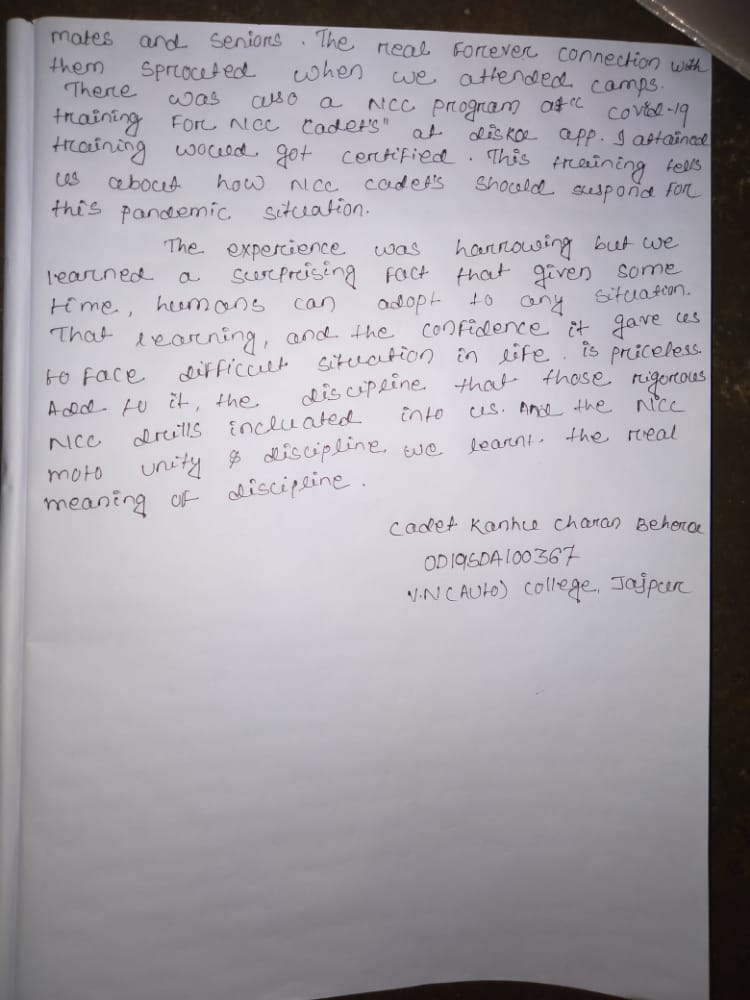 mates and seniors. The real forever connection with
them sprouted when we attended camps.
There was also a NCC program of "covid-19
training for NCC cadets" at diksha app. I attained
training would got certified. This training tells
us about how NCC cadets should suspond for
this pandemic situation.
The experience was harrowing but we
learned a surprising fact that given some
time, humans can adopt to any situation.
That learning, and the confidence it gave us
to face difficult situation in life. is priceless.
Add to it, the discipline that those rigorous
NCC drills incluated into us. And the NCC
moto unity & discipline we learnt. the real
meaning of discipline.
Cadet Kanhu Charan Behera
OD19SDA100367
V.N(Auto) College, Jajpur